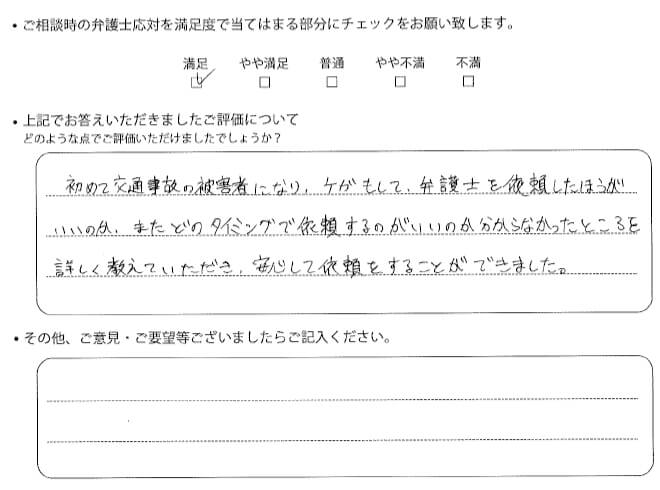 ・ご相談時の弁護士応対を満足度で当てはまる部分にチェックをお願い致します。
満足 やや満足 普通 やや不満 不満
・上記でお答えいただきましたご評価について
どのような点でご評価いただけましたでしょうか？
初めて交通事故の被害者になり、ケガもして、弁護士を依頼したほうが
いいのか、またどのタイミングで依頼するのがいいのか分からなかったところを
詳しく教えていただき、安心して依頼をすることができました。
・その他、ご意見・ご要望等ございましたらご記入ください。